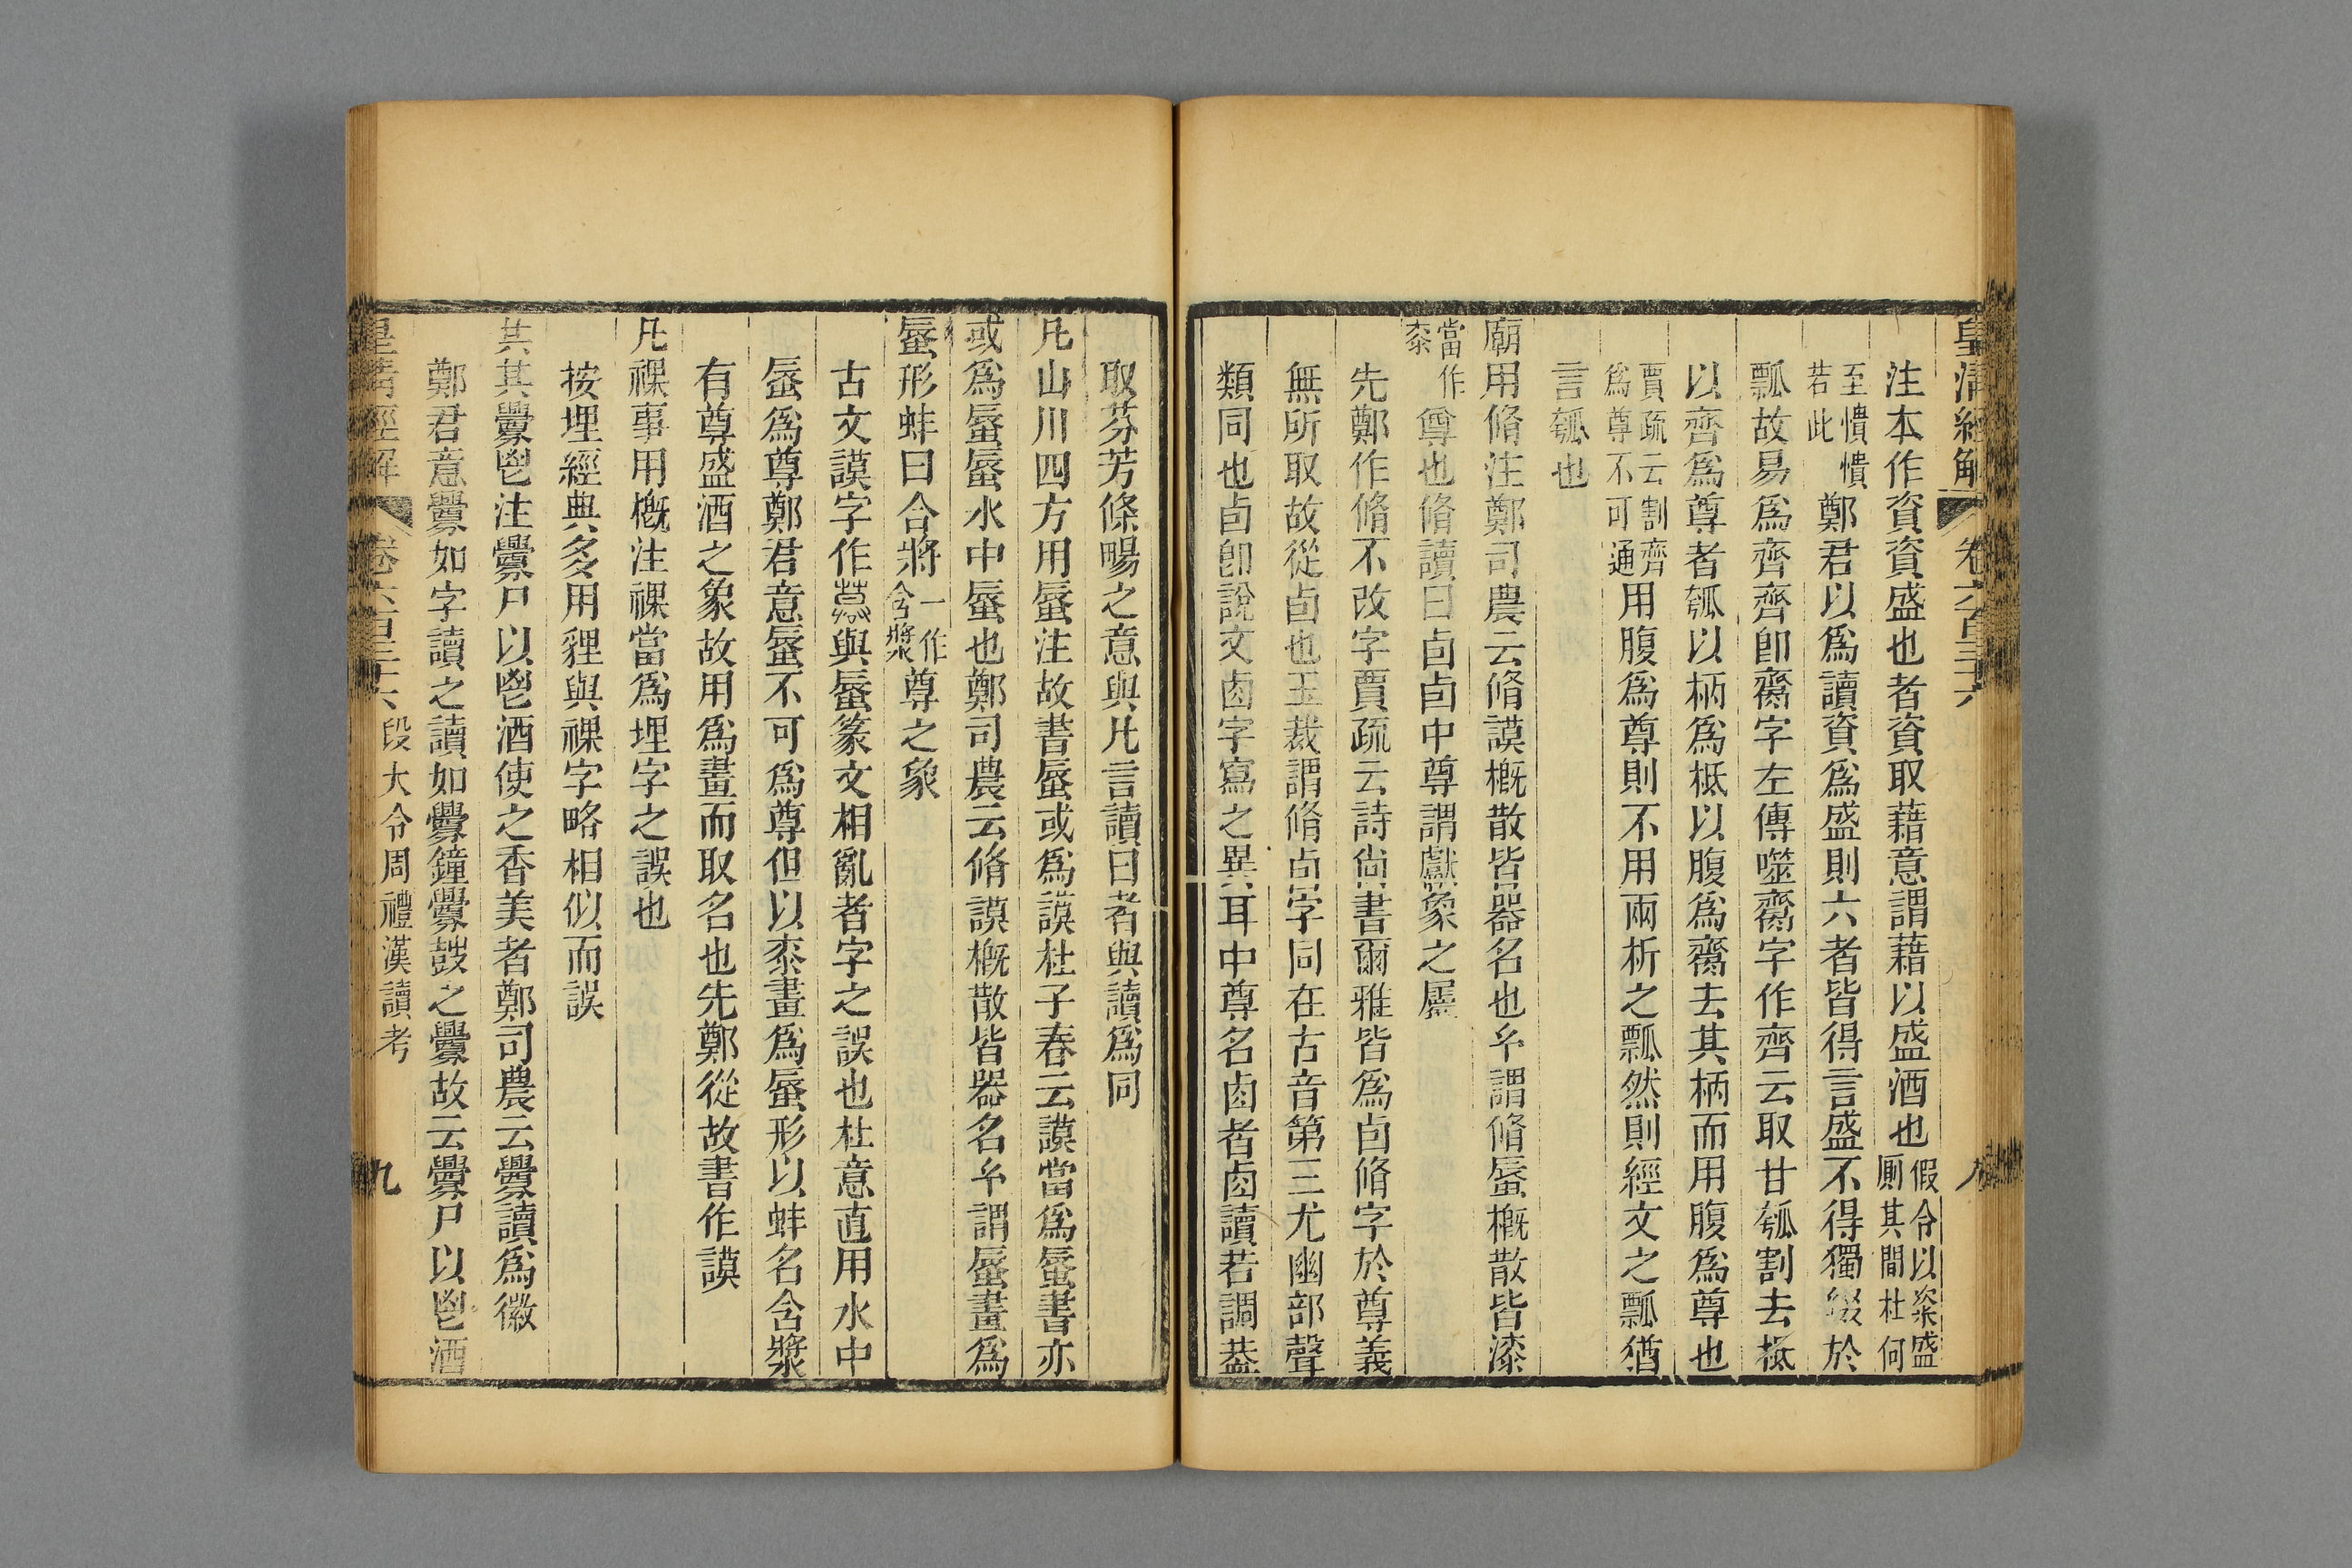 皇清經解 卷六百三十六 八
注本作資資盛也者資取藉意謂藉以盛酒也假令以粢盛厠其間杜何
至憒憒若此鄭君以爲讀資爲盛則六者皆得言盛不得獨綴於
瓢故易爲齊齊卽臍字左傳噬臍字作齊云取甘瓠割去柢
以齊爲尊者瓠以柄爲柢以腹爲臍去其柄而用腹爲尊也
賈疏云割齊爲尊不可通用腹爲尊則不用兩析之瓢然則經文之瓢猶
言瓠也
廟用脩注鄭司農云脩謨概散皆器名也玄謂脩蜃概散皆漆
當作桼尊也脩讀曰卣卣中尊謂獻象之屬
先鄭作脩不改字賈疏云詩尙書爾雅皆爲卣脩字於尊義
無所取故從卣也玉裁謂脩卣字同在古音第三尤幽部聲
類同也卣卽說文卤字寫之異耳中尊名卤者卤讀若調葢
取芬芳條暢之意與凡言讀曰者與讀爲同
凡山川四方用蜃注故書蜃或爲謨杜子春云謨當爲蜃書亦
或爲蜃蜃水中蜃也鄭司農云脩謨概散皆器名玄謂蜃畫爲
蜃形蚌曰合將一作含漿尊之象
古文謨字作𢡈與蜃篆文相亂者字之誤也杜意直用水中
蜃爲尊鄭君意蜃不可爲尊但以桼畫爲蜃形以蚌名含漿
有尊盛酒之象故用爲畫而取名也先鄭從故書作謨
凡祼事用概注祼當爲埋字之誤也
按埋經典多用貍與祼字略相似而誤
共其釁鬯注釁尸以鬯酒使之香美者鄭司農云釁讀爲徽
鄭君意釁如字讀之讀如釁鐘釁鼓之釁故云釁尸以鬯酒
皇清經解 卷六百三十六 段大令周禮漢讀考 九